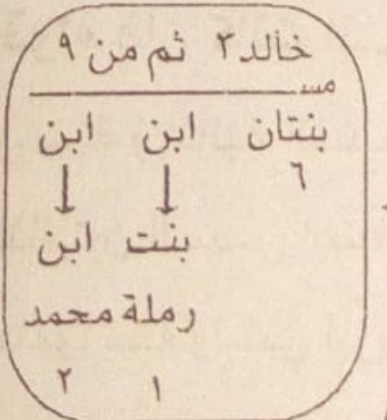 خالد ٣ ثم من ٩
مسـ
بنتان ابن ابن
٦
بنت ابن
رملة محمد
١ ٢